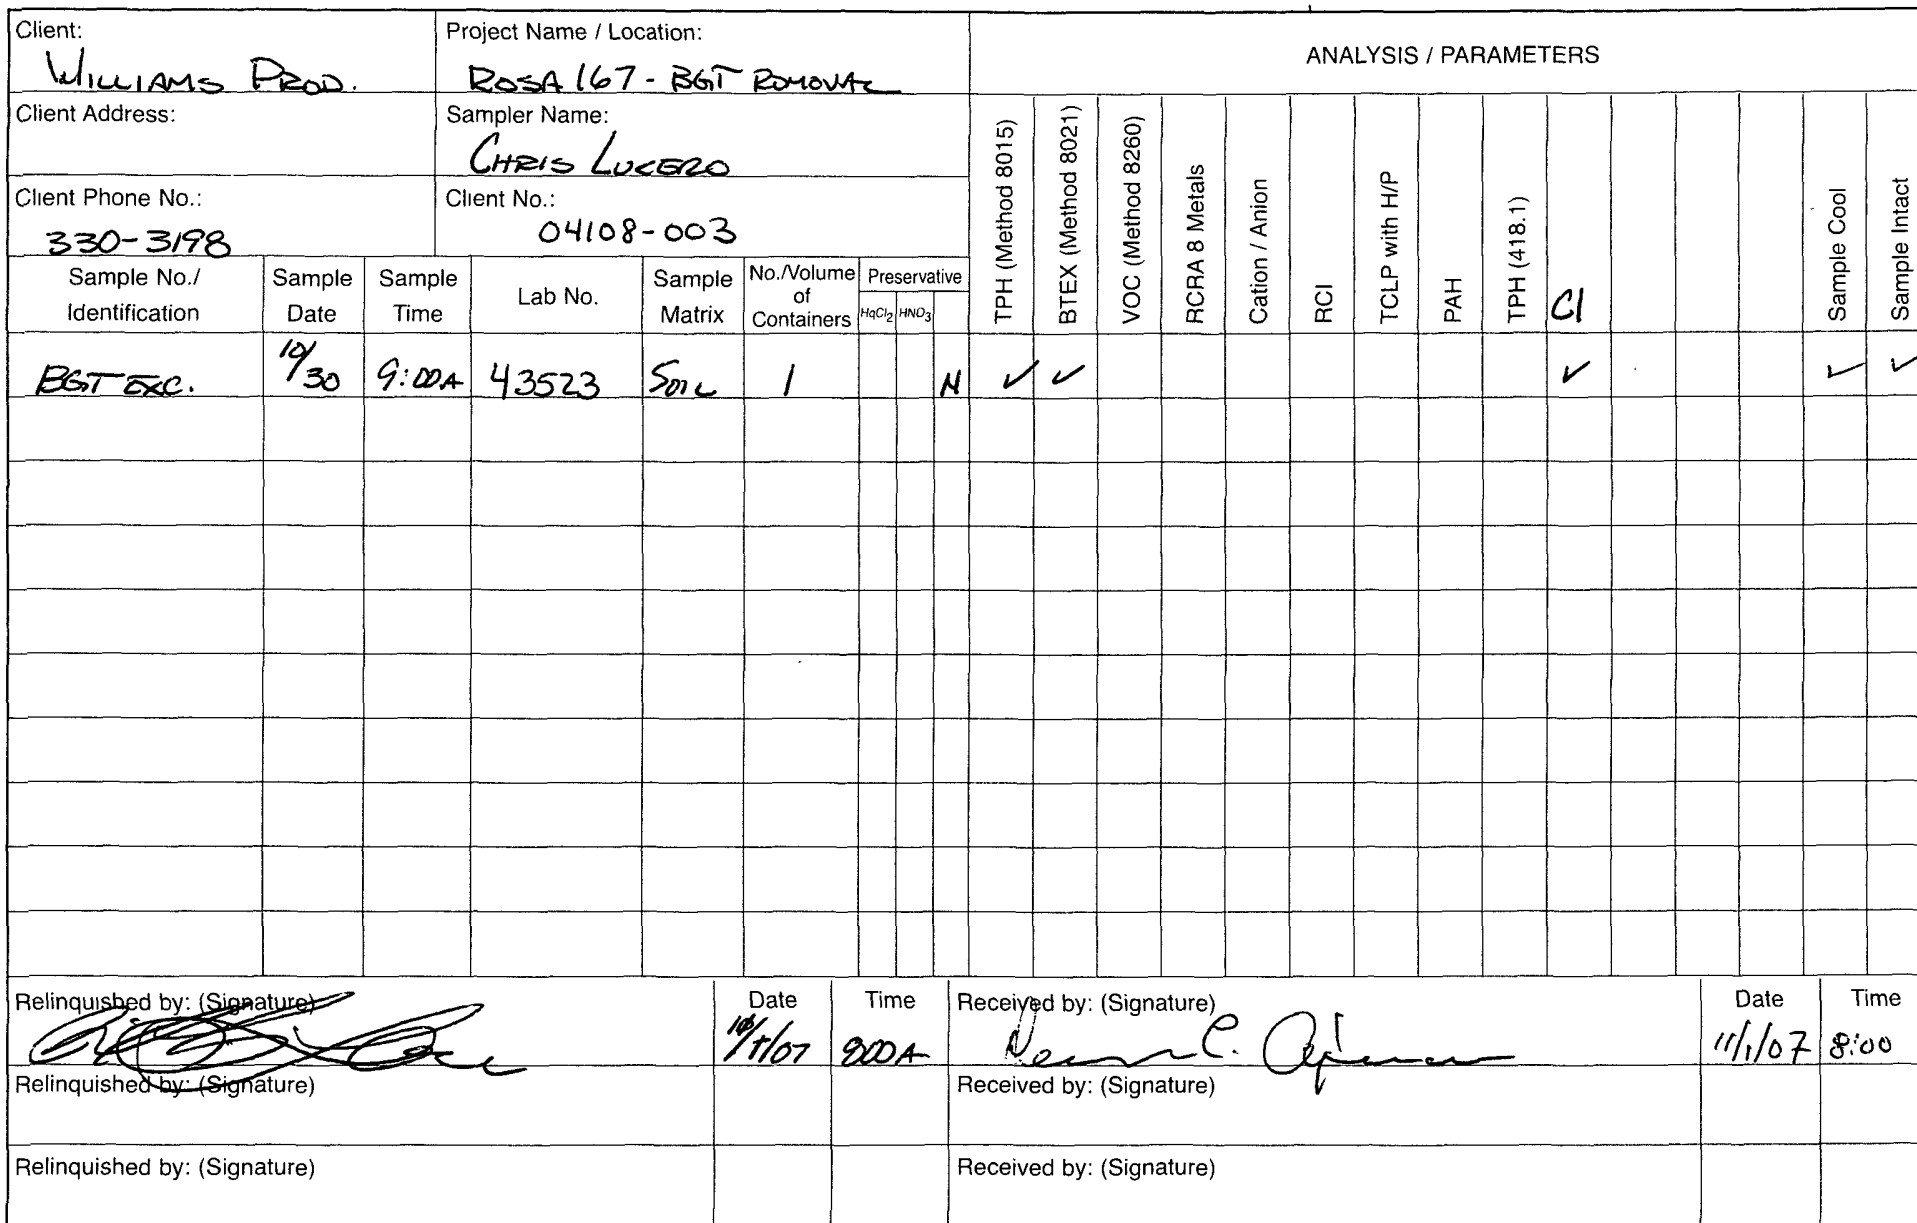 Client:
WILLIAMS PROD.
Project Name / Location:
ROSA 167 - BGT REMOVAL
ANALYSIS / PARAMETERS
Client Address:
Sampler Name:
CHRIS LUCERO
Client Phone No.:
330-3198
Client No.:
04108-003
Sample No./
Identification
Sample
Date
Sample
Time
Lab No.
Sample
Matrix
No./Volume
of
Containers
Preservative
HgCl2 HNO3
TPH (Method 8015)
BTEX (Method 8021)
VOC (Method 8260)
RCRA 8 Metals
Cation / Anion
RCI
TCLP with H/P
PAH
TPH (418.1)
Cl
Sample Cool
Sample Intact
BGT EXC. 10/30 9:00A 43523 SOIL 1 N ✓ ✓ ✓ ✓ ✓
Relinquished by: (Signature)
Date
Time
800A
Received by: (Signature)
Date
11/1/07
Time
8:00
Relinquished by: (Signature)
Received by: (Signature)
Relinquished by: (Signature)
Received by: (Signature)